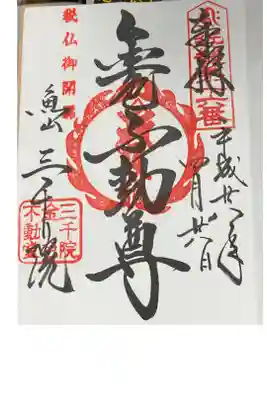 奉拝
平成廿一年
四月廿八日
金不動尊
秘仏御開扉
魚山
三千院
三千院
金
不動堂